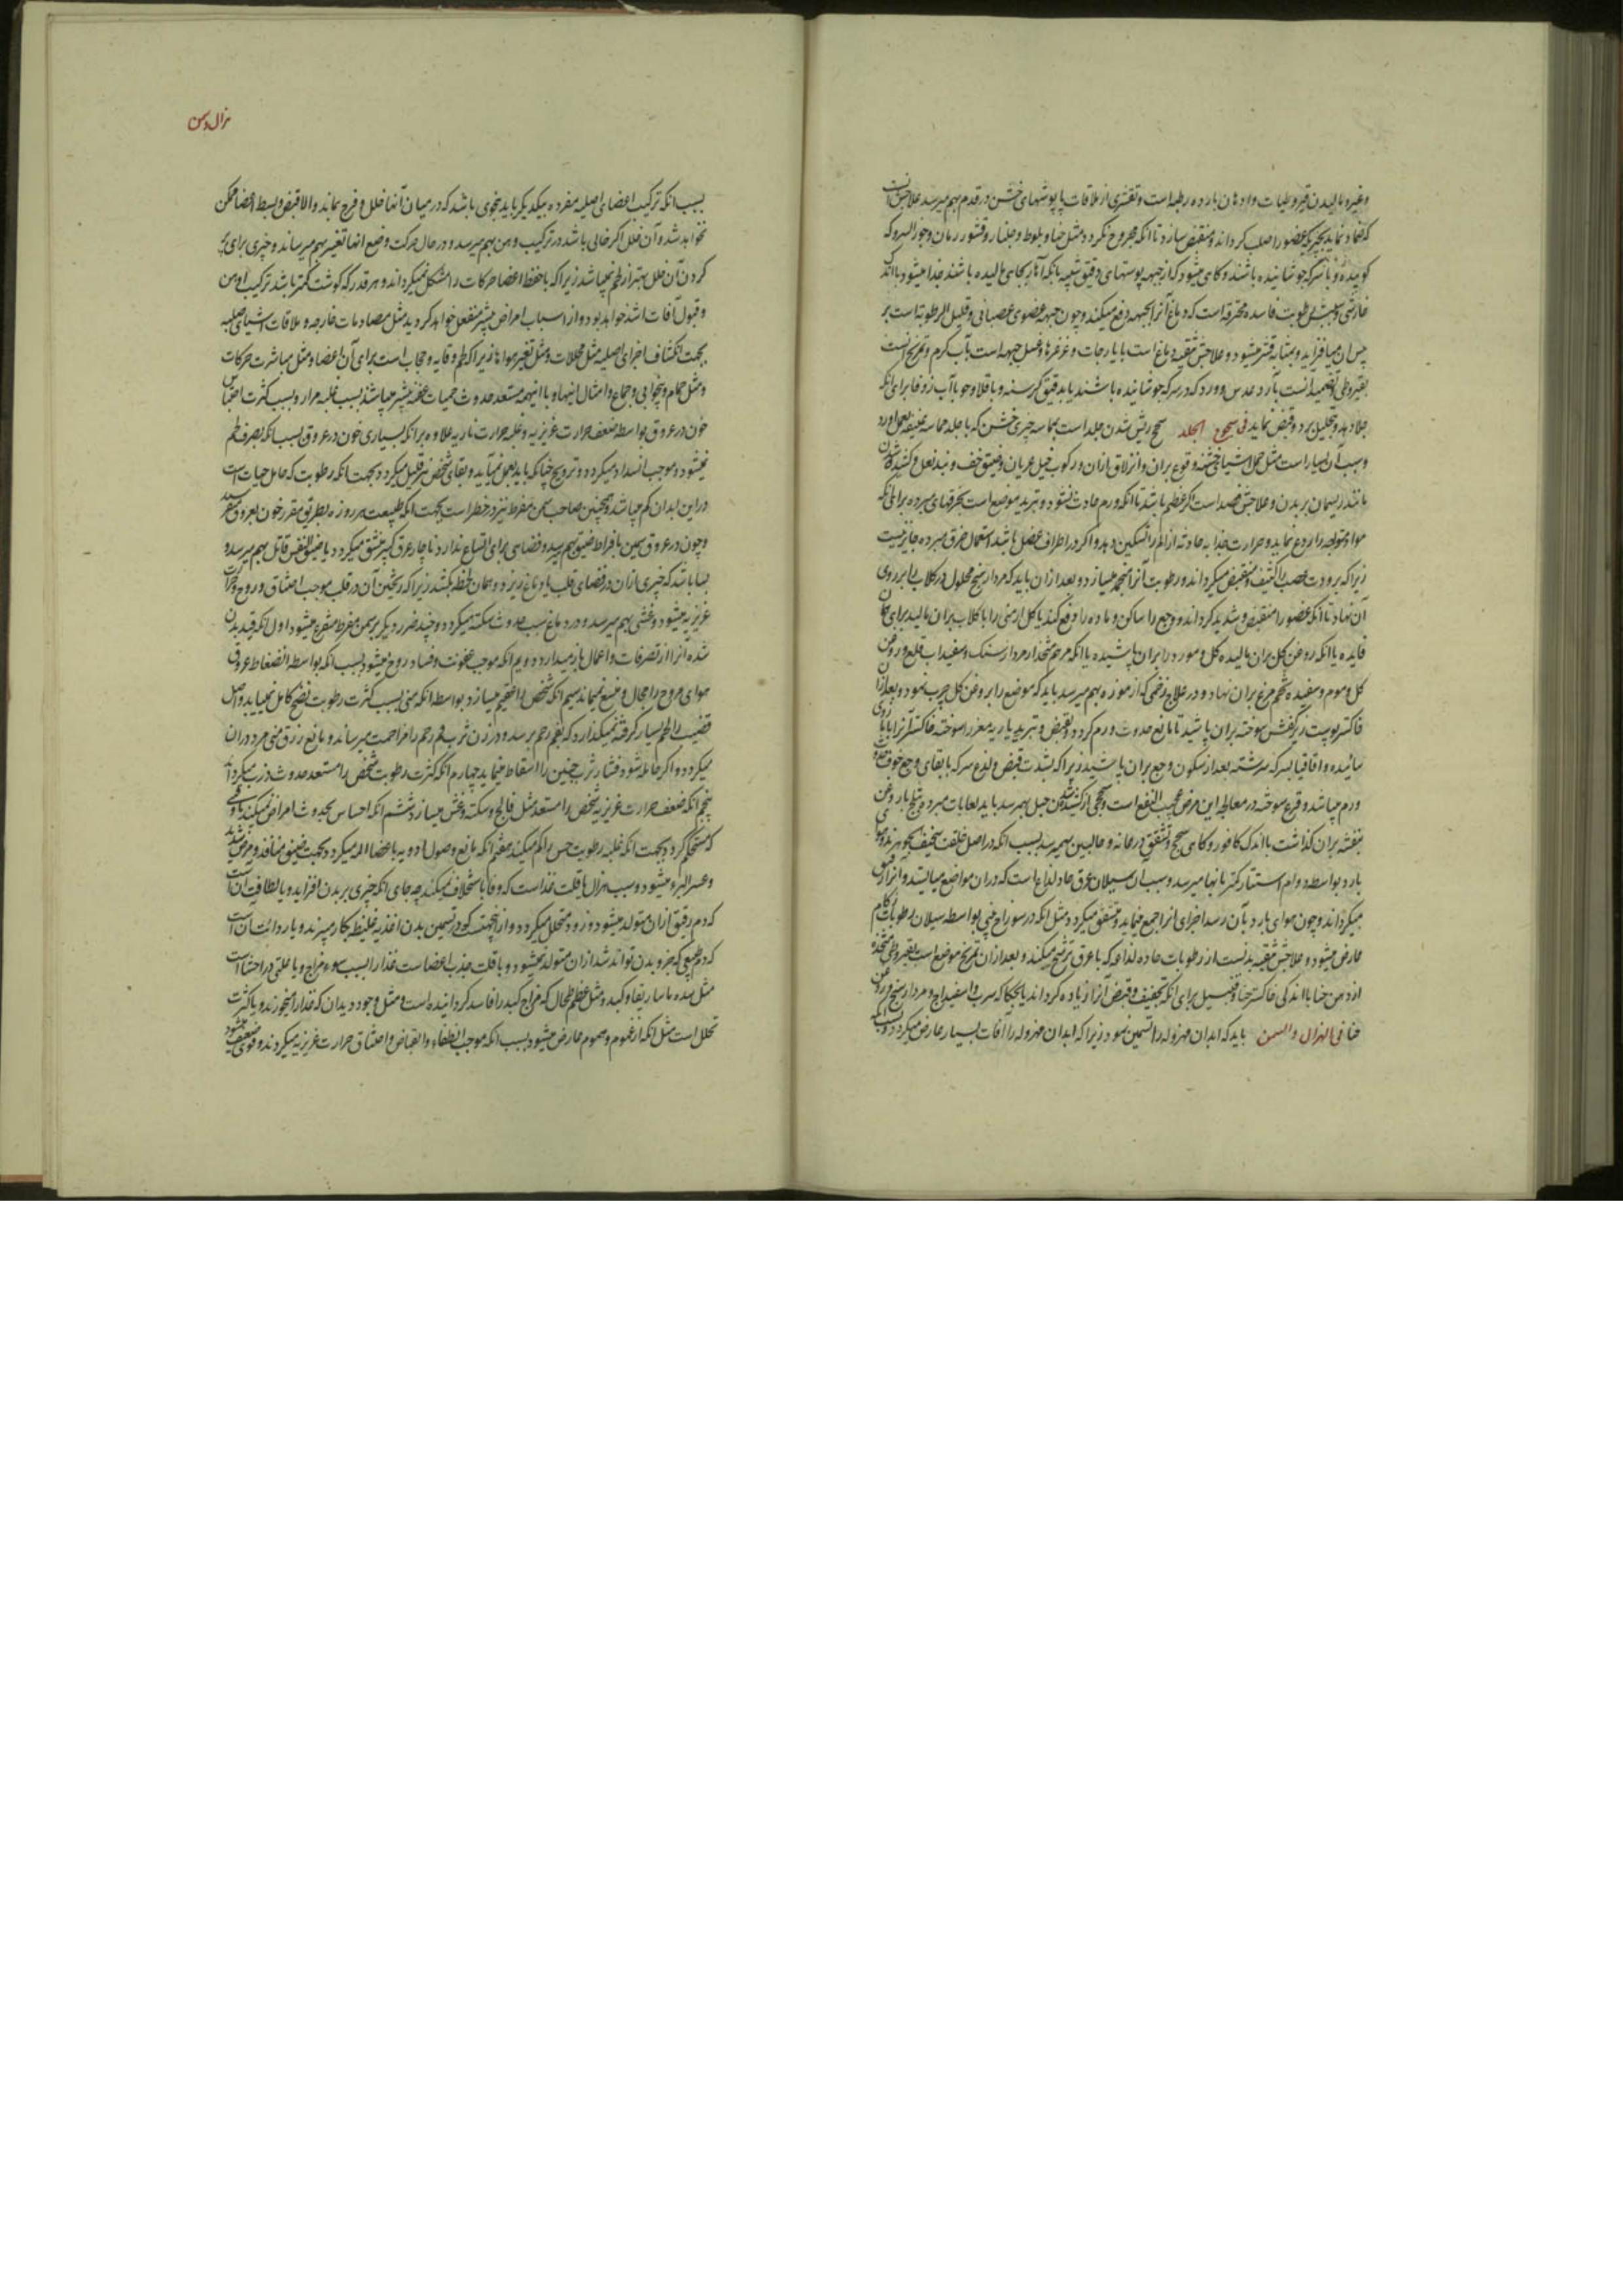 وغیره و مالیدن قیروطیات و ادهان بارده رطبه است و تقشری از ملاقات پاپوشهای خشن در قدم بهم میرسد علاجش آنست
که ضماد نماید بچیزیکه عضو را صلب کرداند و منقبض سازد تا انکه مجروح نکردد مثل حنا و بلوط و جلنار و قشور رمان و جوز السرو که
کوبیده و با سرکه جوشانیده باشند و کاهی میشود که از جبهه پوستهای دقیق شبیه بانکه آثار بجای مالیده باشند جدا میشود با اندک
خارشی و سببش رطوبت فاسده محترقه است که دماغ آنرا بجبهه دفع میکند و چون جبهه عضوی عصبانی و قلیل الرطوبه است بر
پس آن میافزاید و بمثابه قشر میشود و علاجش تنقیه دماغ است بایارجات و غرغرها و غسل جبهه است بآب کرم و تمریخ آنست
بقیروطی و تضمید آنست بآرد عدس و ورد که در سرکه جوشانیده باشند یا بدقیق کرسنه و باقلا و جو با آب زوفا برای انکه
جلا دهد و تحلیل برد و قبض نماید فی سحج الجلد سحج ریش شدن جلد است بمماسه چیزی خشن که با جلد مماسه عنیفه بعمل اورد
و سبب آن بسیار است مثل حمل اشیای خشنه و وقوع بران و انزلاق ازان و رکوب خیل عریان و ضیق خف و بند نعل و کشیدن
مانند ریسمان بر بدن و علاجش فصد است اکر عظیم باشد تا انکه ورم حادث نشود و تبرید موضع است بخرقهای مبرده برای انکه
مواد متوجه را ردع نماید و حرارت جذابه حادثه از الم را تسکین دهد و اکر در اطراف عضل باشد استعمال خرق مبرده جایز نیست
زیرا که برودت عصب را کثیف و منقبض میکرداند و رطوبت آنرا منجمد میسازد و بعد ازان باید که مردارسنج محلول در کلاب را بر روی
آن نهاد تا انکه عضو را منقبض و شدید کرداند و وجع را ساکن و ماده را دفع کند یا کل ارمنی را با کلاب بران مالید برای همان
فایده یا انکه روغن کل بران مالیده کل و مورد را بران پاشیده یا انکه مرهم متخذ از مردارسنک و سفیداب قلع و روغن
کل و موم و سفیده تخم مرغ بران نهاد و در علاج زخمی که از موزه بهم میرسد باید که موضع را بروغن کل چرب نمود و بعد ازان
خاکستر پوست زیر کفش سوخته بران پاشید تا مانع حدوث ورم کردد و بقبض و تبرید یا ریه معز را سوخته خاکستر آنرا با
سائیده و اقاقیا بسرکه سرشته بعد از سکون وجع بران پاشید زیرا که بشدت قبض و لذع سرکه با بقای وجع خوف
ورم میباشد و قرع سوخته در معالجه این مرض عجیب النفع است و سحجی از کشیدن حبل بهمرسد باید لعابات مبرده بثلج با روغن
بنفشه بران کذاشت با اندک کافور و کاهی سحج و تشقق در عانه و حالبین بهمیرسد بسبب انکه در اصل خلقت سخیف
بارد بواسطه دوام استتار کمتر بانها میرسد و سبب آن سیلان عرق حاد لذاع است که دران مواضع میایستد و آنرا رقیق
میکرداند و چون هوای بارد بآن رسد اجزای انرا جمع مینماید و متشقق میکردد مثل انکه در سوراخ بینی بواسطه سیلان رطوبات زکام
عارض میشود و علاجش تنقیه بدنست از رطوبات حاده لذاعه که با عرق ترشح میکند و بعد ازان تمریخ موضع است بقیروطی متخذه
از دهن حنا با اندکی خاکستر حنا و زنجبیل برای انکه تجفیف و قبض آنرا زیاده کرداند یا بحکاکه سرب و اسفیداج و مردارسنج و روغن
حنا فی الهزال و السمن باید که ابدان مهزوله را تسمین نمود زیرا که ابدان مهزوله را آفات بسیار عارض میکردد بسبب انکه
هزال و سمن
بسبب انکه ترکیب اعضای اصلیه مفرده بیکدیکر باید بنحوی باشد که در میان آنها خلل و فرج بماند و الا قبض و بسط اعضا ممکن
نخواهد شد و آن خلل اکر خالی باشد در ترکیب وهن بهم میرسد و در حال حرکت وضع انها تغیر بهم میرساند و چیزی برای پر
کردن آن خلل بهتر از لحم نمیباشد زیرا که با حفظ اعضا حرکات را مشکل نمیکرداند و هر قدر که کوشت کمتر باشد ترکیب اوهن
و قبول آفات اشد خواهد بود و از اسباب امراض بیشتر منفعل خواهد کردید مثل مصادمات خارجه و ملاقات اشیای صلبه
بجهت انکشاف اجزای اصلیه مثل محللات و مثل تغیر هواها زیرا که لحم وقایه و حجاب است برای آن اعضا و مثل مباشرت حرکات
و مثل حمام و بیخوابی و جماع و امثال اینها و با اینهمه مستعد حدوث حمیات عفنه بیشتر میباشند بسبب غلبه مرار و بسبب کثرت احتباس
خون در عروق بواسطه ضعف حرارت غریزیه و غلبه حرارت ناریه علاوه برانکه بسیاری خون در عروق بسبب انکه بصرف لحم
نمیشود و موجب انسداد میکردد و ترویح چنانکه باید بعمل نمیآید و بقای شخص نیز قلیل میکردد بجهت انکه رطوبت که حامل حیات است
در این ابدان کم میباشد و همچنین صاحب سمن مفرط نیز در خطر است بجهت انکه طبیعت هر روزه بطریق مقرر خون بعروق میفرستد
و چون در عروق سمین بافراط ضیق بهم رسید و فضاهی برای اتساع ندارد ناچار عرق کبیر منشق میکردد یا ضیق النفس قاتل بهم میرسد و
بسا باشد که چیزی ازان در فضای قلب یا دماغ ریزد و همان لحظه بکشد زیرا که ریختن آن در قلب موجب اختناق روح و حرارت
غریزیه میشود و غشی بهم میرسد و در دماغ سبب حدوث سکته میکردد و چند ضرر دیکر بر سمن مفرط متفرع میشود اول انکه قید بدن
شده آنرا از تصرفات و اعمال باز میدارد دویم انکه موجب عفونت و فساد روح میشود بسبب انکه بواسطه انضغاط عروق
هوای مروح را مجال و متسع نمیماند سیم انکه شخص را عقیم میسازد بواسطه انکه منی بسبب کثرت رطوبت نضج کامل نمییابد و اصل
قضیب را لحم بسیار کرفته نمیکذارد که بفم رحم برسد و در زن ثرب فم رحم را مزاحمت میرساند و مانع زرق منی مرد دران
میکردد و اکر حامله شود فشار ثرب جنین را اسقاط مینماید چهارم انکه کثرت رطوبت شخص را مستعد حدوث ذرب میکرداند
پنجم انکه ضعف حرارت غریزیه شخص را مستعد مثل فالج و سکته و غش میسازد ششم انکه احساس بحدوث امراض نمیکند تا وقتی
که مستحکم کردد بجهت انکه غلبه رطوبت حس را کم میکند هفتم انکه مانع وصول ادویه باعضا الم میکردد بجهت ضیق منافذ و مرض شدید
و عسر البرء میشود و سبب هزال یا قلت غذا است که وفا باستخلاف نمیکند چه جای انکه چیزی بر بدن افزاید و یا لطافت آنست
که دم رقیق ازان متولد میشود و زود متحلل میکردد و از اینجهتست که در تسمین بدن اغذیه غلیظه بکار میبرند و یا ردائت آنست
که دم طبیعی که جزو بدن تواند شد ازان متولد نمیشود و یا قلت جذب اعضا است غذا را بسبب سوء مزاج و یا علتی در احشا است
مثل سده ماساریقا و کبد و مثل عظم طحال که مزاج کبد را فاسد کردانیده است و مثل وجود دیدان که غذا را میخورند و یا کثرت
تحلل است مثل انکه از غموم و هموم عارض میشود بسبب انکه موجب انطفاء و انقباض و اختناق حرارت غریزیه میکردند و قوی ضعیف میشود